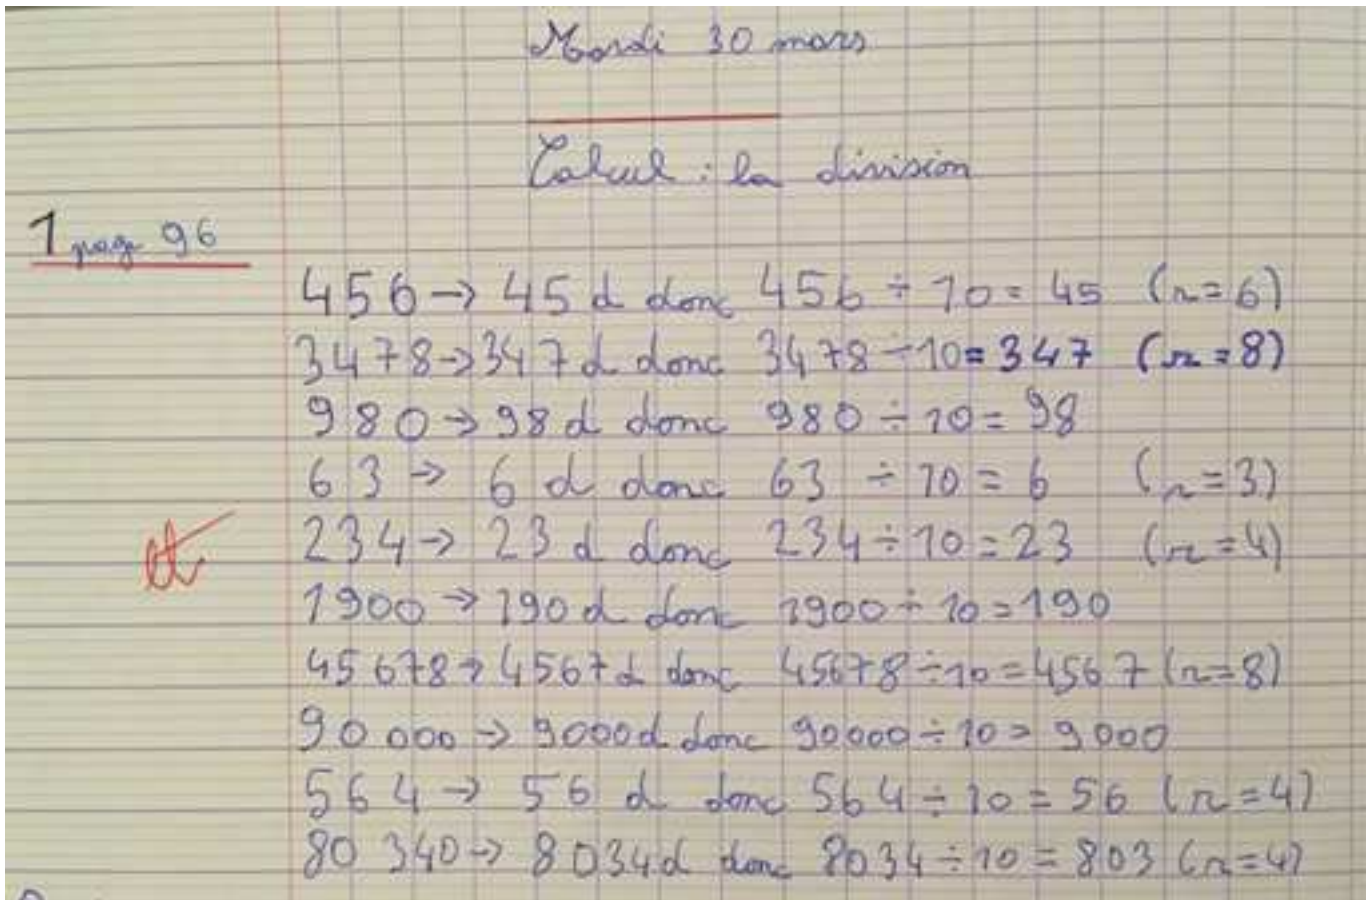 Mardi 30 mars
Calcul : la division
1 page 96
456 → 45 d donc 456 ÷ 10 = 45 (r = 6)
3478 → 347 d donc 3478 ÷ 10 = 347 (r = 8)
980 → 98 d donc 980 ÷ 10 = 98
63 → 6 d donc 63 ÷ 10 = 6 (r = 3)
234 → 23 d donc 234 ÷ 10 = 23 (r = 4)
1900 → 190 d donc 1900 ÷ 10 = 190
45678 → 4567 d donc 45678 ÷ 10 = 4567 (r = 8)
90 000 → 9000 d donc 90000 ÷ 10 = 9000
564 → 56 d donc 564 ÷ 10 = 56 (r = 4)
80 340 → 8034 d donc 8034 ÷ 10 = 803 (r = 4)